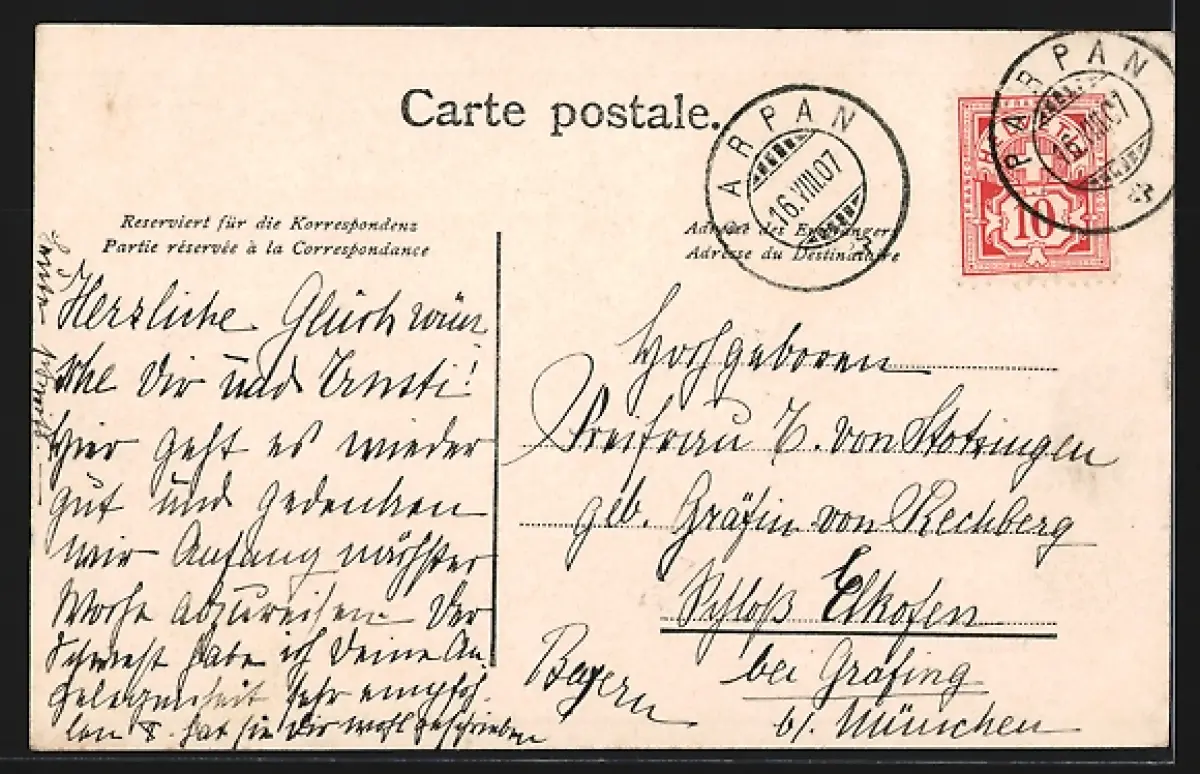 Carte postale.
PARPAN
16.VIII.07
PARPAN
16.VIII.07
10
Reserviert für die Korrespondenz
Partie réservée à la Correspondance
Adresse des Empfängers
Adresse du Destinataire
Herzliche Glückwün
sche Dir und Ernsti!
Hier geht es wieder
gut und gedenken
wir Anfang nächster
Woche abzureisen. Der
habe ich Deine An-
gelegenheit sehr empfoh-
len hat sie Dir wohl geschrieben
Hochgeboren
Freifrau E. von Stotzingen
geb. Gräfin von Rechberg
Schloß Elkofen
bei Grafing
b/. München
Bayern